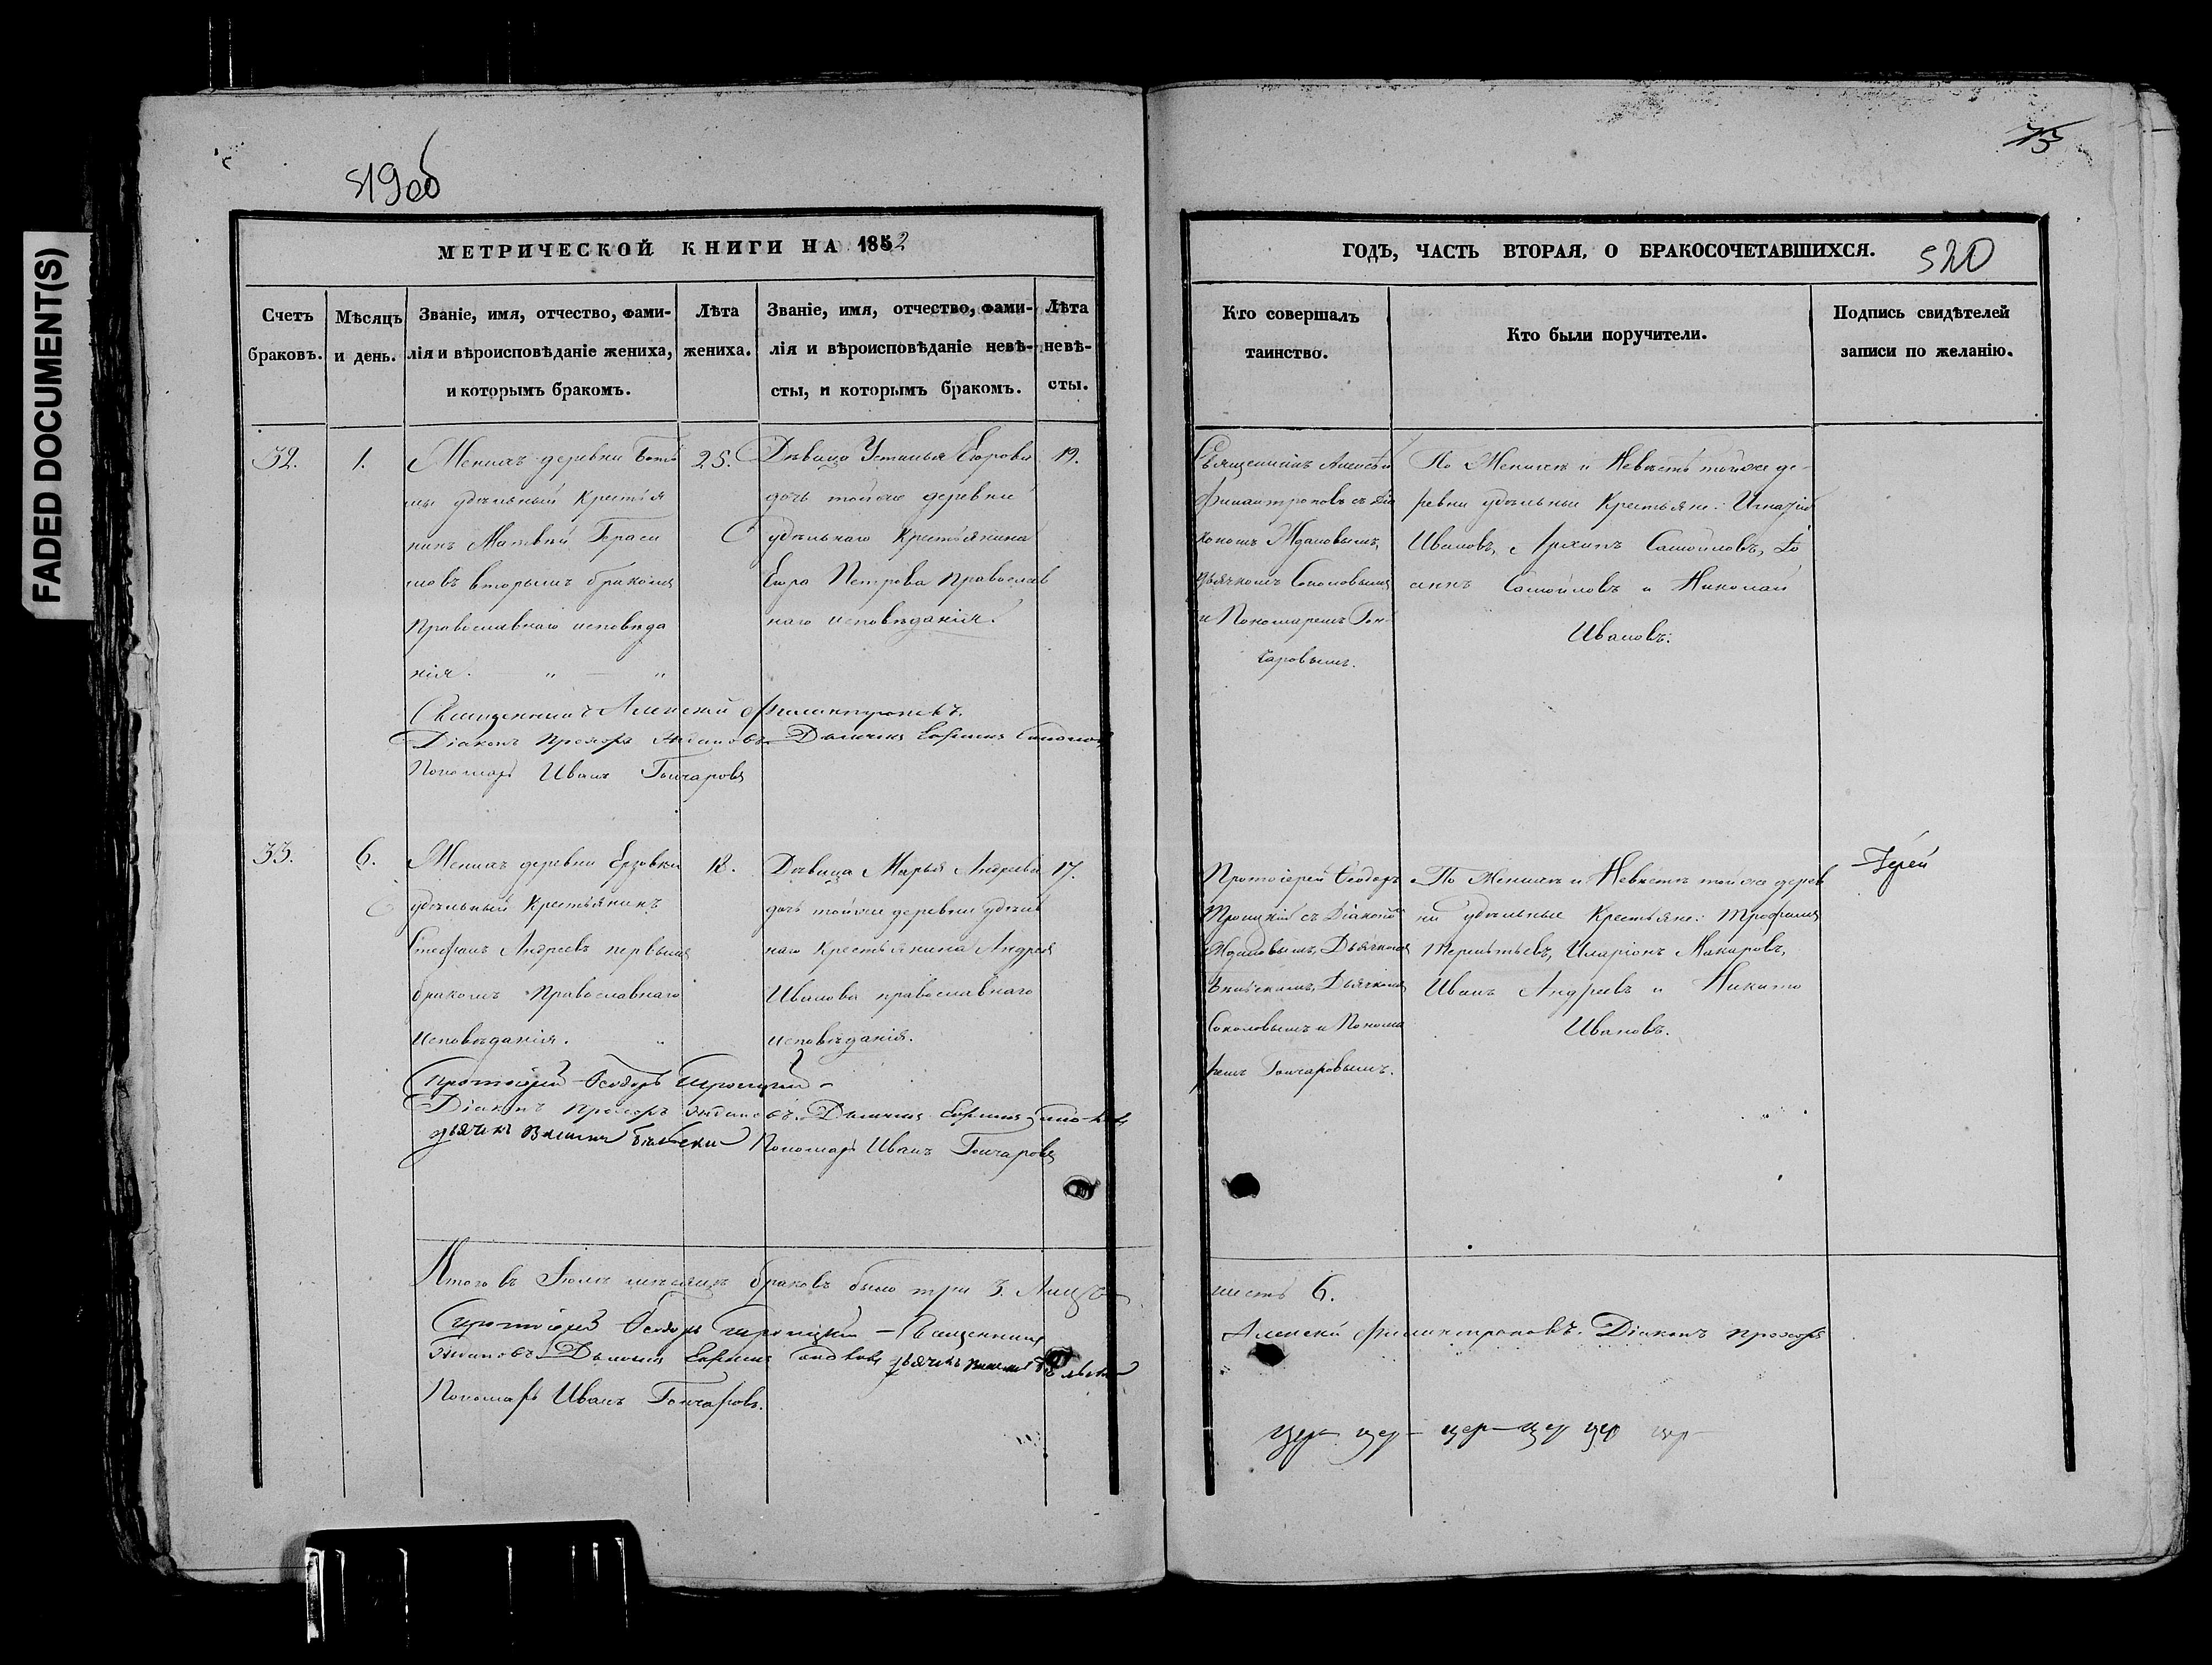 FADED DOCUMENT(S)
519об
МЕТРИЧЕСКОЙ КНИГИ НА 1852
Счетъ браковъ.
Мѣсяцъ и день.
Званіе, имя, отчество, фами-
лія и вѣроисповѣданіе жениха,
и которымъ бракомъ.
Лѣта
жениха.
Званіе, имя, отчество, фами-
лія и вѣроисповѣданіе невѣ-
сты, и которымъ бракомъ.
Лѣта
невѣ-
сты.
32.
1.
Женихъ деревни
удѣльный Крестья
нинъ Матвѣй Гераси
мовъ вторымъ бракомъ
Православнаго исповѣда
нія.
25.
Дѣвица Устинья Егорова
дочь тойже деревни
удѣльнаго Крестьянина
Егора Петрова Православ
наго исповѣданія.
19.
Священникъ Алексѣй Филантроповъ.
Діаконъ Прохоръ Ждановъ Дьячекъ
Пономарь Иванъ Гончаровъ
33.
6.
Женихъ деревни Ерзовки
удѣльный Крестьянинъ
Стефанъ Андреевъ первымъ
бракомъ Православнаго
исповѣданія.
18.
Дѣвица Марья Андреева
дочь тойже деревни удѣль
наго Крестьянина Андрея
Иванова православнаго
исповѣданія.
17.
Протоіерей Ѳеодоръ Троицкій
Діаконъ Прохоръ Ждановъ. Дьячекъ
дьячекъ
Пономарь Иванъ Гончаровъ
Итого въ Іюлѣ мѣсяцѣ браковъ было три 3. Лицъ
Протоіерей Ѳеодоръ Троицкій Священникъ
Ждановъ Дьячекъ
Пономарь Иванъ Гончаровъ.
73
ГОДЪ, ЧАСТЬ ВТОРАЯ, О БРАКОСОЧЕТАВШИХСЯ.
520
Кто совершалъ
таинство.
Кто были поручители.
Подпись свидѣтелей
записи по желанію.
Священникъ Алексѣй
Филантроповъ съ Діа
кономъ Ждановымъ,
Дьячкомъ Соколовымъ
и Пономаремъ Гон-
чаровымъ.
По Женихѣ и Невѣстѣ тойже де-
ревни удѣльные Крестьяне: Игнатій
Ивановъ, Архипъ Самойловъ, Іо
аннъ Самойловъ и Николай
Ивановъ.
Протоіерей Ѳеодоръ
Троицкій съ Діакономъ
Ждановымъ, Дьячкомъ
Дьячкомъ
Соколовымъ и Понома
ремъ Гончаровымъ.
По Женихѣ и Невѣстѣ тойже дерев
ни удѣльные Крестьяне: Трофимъ
Терентьевъ, Иларіонъ Макаровъ,
Иванъ Андреевъ и Никита
Ивановъ.
Іерей
шесть 6.
Алексѣй Филантроповъ. Діаконъ Прохоръ
цер цер цер цер